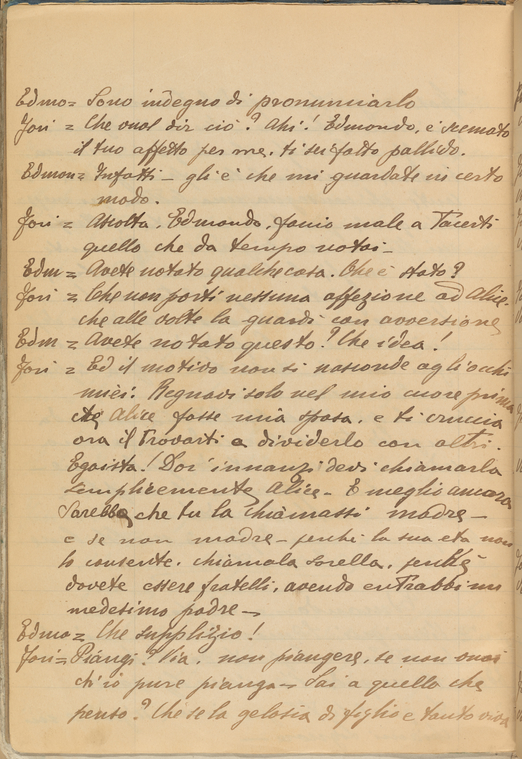 Edmo = Sono indegno di pronunciarlo
Jori = Che vuol dir ciò? Ahi! Edmondo, è scemato
il tuo affetto per me, ti sei fatto pallido.
Edmon = Infatti - gli è che mi guardate in certo
modo.
Jori = Ascolta, Edmondo, faccio male a tacerti
quello che da tempo notai -
Edm = Avete notato qualche cosa. Che è stato?
Jori = Che non porti nessuna affezione ad Alice.
che alle volte la guardi con avversione
Edm = Avete notato questo? Che idea!
Jori = Ed il motivo non si nasconde agli occhi
miei. Regnavi solo nel mio cuore prima
che Alice fosse mia sposa, e ti cruccia
ora il trovarti a dividerlo con altri.
Egoista! D'or innanzi devi chiamarla
semplicemente Alice - E meglio ancora
sarebbe che tu la chiamassi madre -
e se non madre - perchè la sua età non
lo consente, chiamala sorella, perchè
dovete essere fratelli, avendo entrambi un
medesimo padre -
Edmo = Che supplizio!
Jori = Piangi? Via, non piangere, se non vuoi
ch'io pure pianga - Sai a quello che
penso? Che se la gelosia di figlio è tanto viva